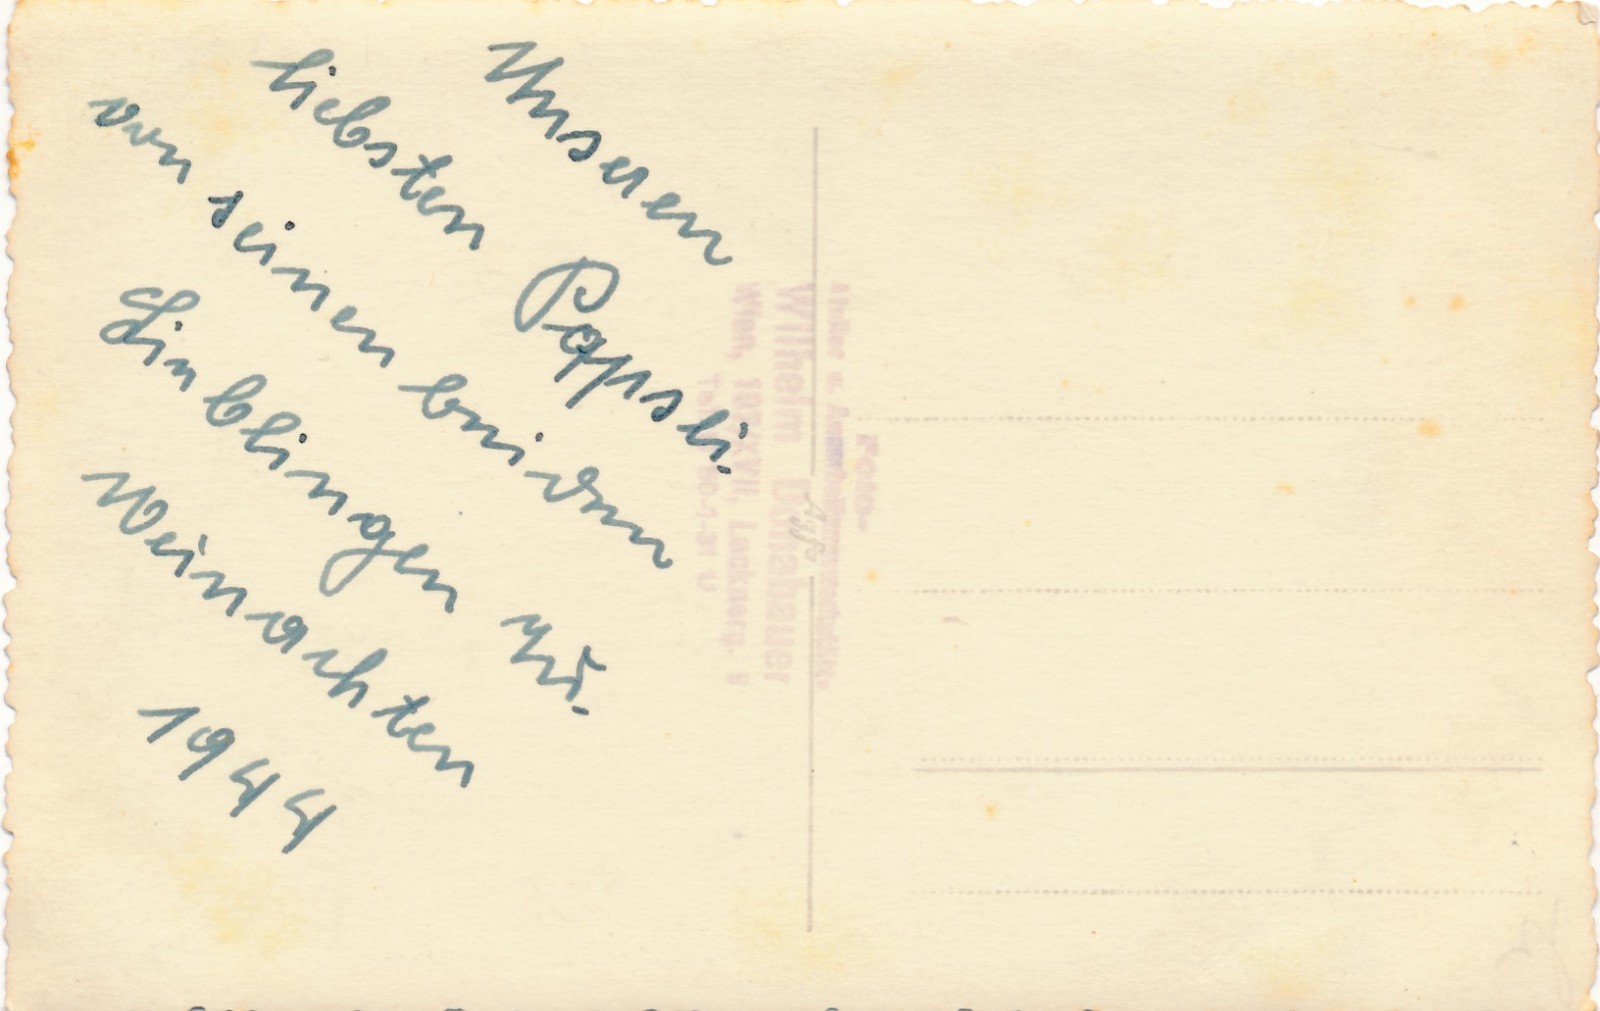 Unseren
liebsten Papsli.
von seinen beiden
Lieblingen zu.
Weinachten
1944
Foto-
Atelier u.
Wilhelm Donabauer
Wien, 107/XVII,
9
Agfa